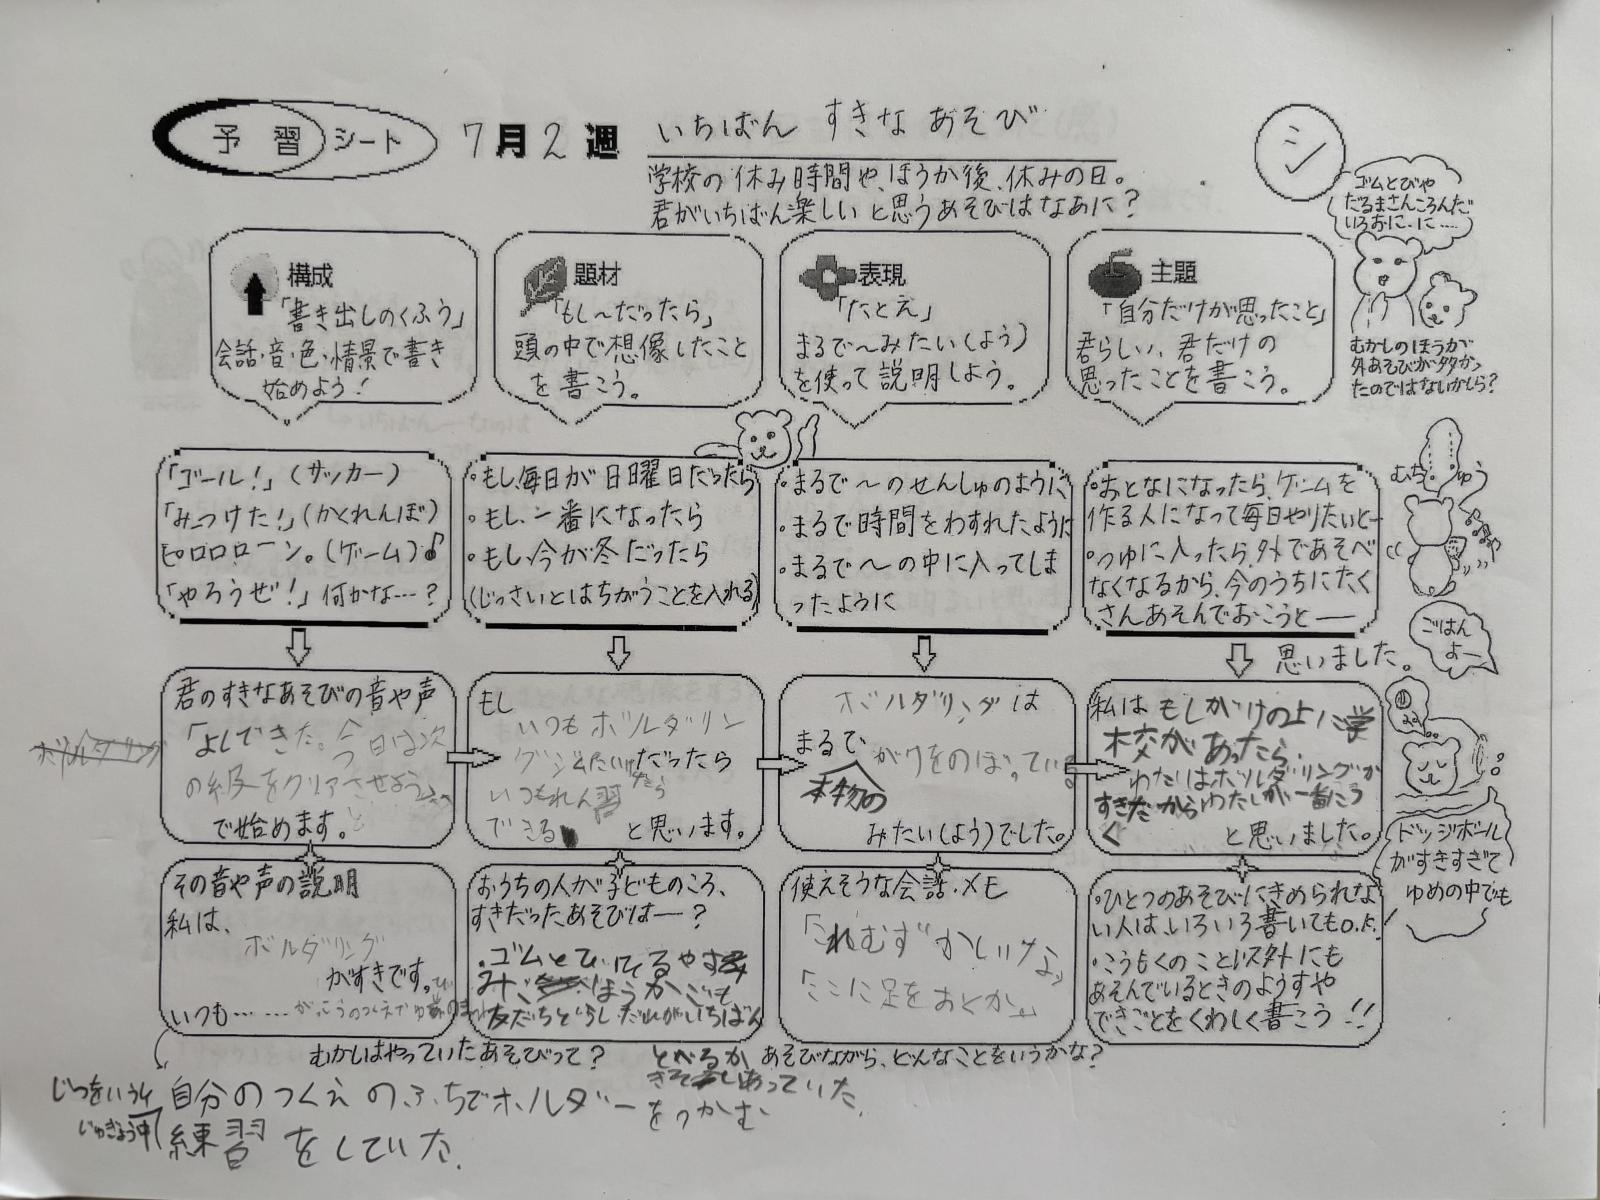 予習シート
7月2週
いちばん すきな あそび
学校の休み時間や、ほうか後、休みの日。
君がいちばん楽しいと思うあそびはなあに?
シ
ゴムとびや
だるまさんころんだ
いろおに…に……
むかしのほうが
外あそびが多かっ
たのではないかしら?
構成
「書き出しのくふう」
会話・音・色・情景で書き
始めよう!
題材
「もし〜だったら」
頭の中で想像したこと
を書こう。
表現
「たとえ」
まるで〜みたい(よう)
を使って説明しよう。
主題
「自分だけが思ったこと」
君らしい、君だけの
思ったことを書こう。
「ゴール!」(サッカー)
「みつけた!」(かくれんぼ)
ピロロローン。(ゲーム)♪
「やろうぜ!」何かな…?
・もし、毎日が日曜日だったら
・もし、一番になったら
・もし、今が冬だったら
(じっさいとはちがうことを入れる)
・まるで〜のせんしゅのように
・まるで時間をわすれたように
・まるで〜の中に入ってしま
ったように
・おとなになったら、ゲームを
作る人になって毎日やりたいと―
・つゆに入ったら、外であそべ
なくなるから、今のうちにたく
さんあそんでおこうと――
思いました。
むちゅう
ごはん
よー
君のすきなあそびの音や声
「よしできた。今日は次
の級をクリアさせよう」
で始めます。
もし
いつもボルダリン
グジム だったら
いつもれん習
できる と思います。
ボルダリングは
まるで
本物の
がけをのぼっている
みたい(よう)でした。
私はもしがけの上に学
校があったら、
わたしはボルダリングが
すきだからわたしが一番こう
く
と思いました。
ドッジボール
がすきすぎて
ゆめの中でも
その音や声の説明
私は、
ボルダリング
がすきです。
いつも……
おうちの人が子どものころ、
すきだったあそびは―?
・ゴムとび
ほうかごも
友だちと だれがいちばん
とべるか
あっていた。
むかしはやっていたあそびって?
使えそうな会話・メモ
「これむずかしいけど」
「ここに足をおくか」
あそびながら、どんなことをいうかな?
・ひとつのあそびにきめられな
い人は、いろいろ書いてもO.K.
・こうもくのこと以外にも
あそんでいるときのようすや
できごとをくわしく書こう!!
じつをいうと
じゅぎょう中
自分のつくえのふちでホルダーをつかむ
練習をしていた。